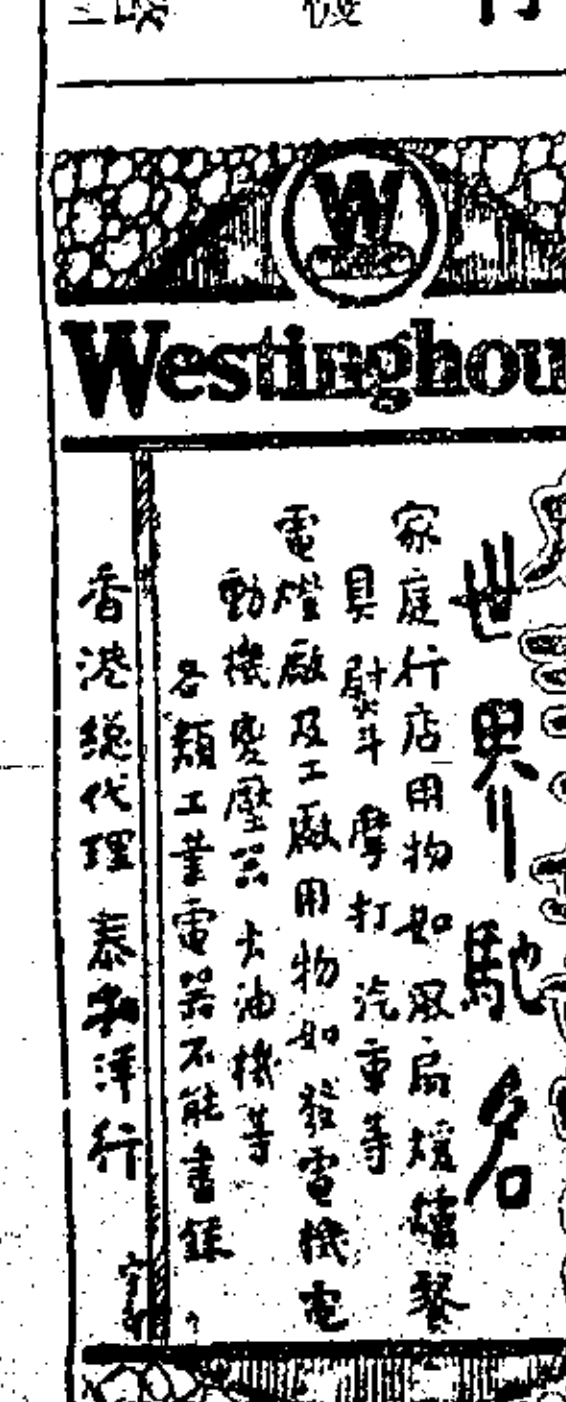 Westinghou
世界馳名
家庭行店用物如風扇煖爐餐
具熨斗摩打汽車等
電燈廠及工廠用物如發電機電
動機變壓器大油機等
各類工業電器不能盡錄
香港總代理泰和洋行